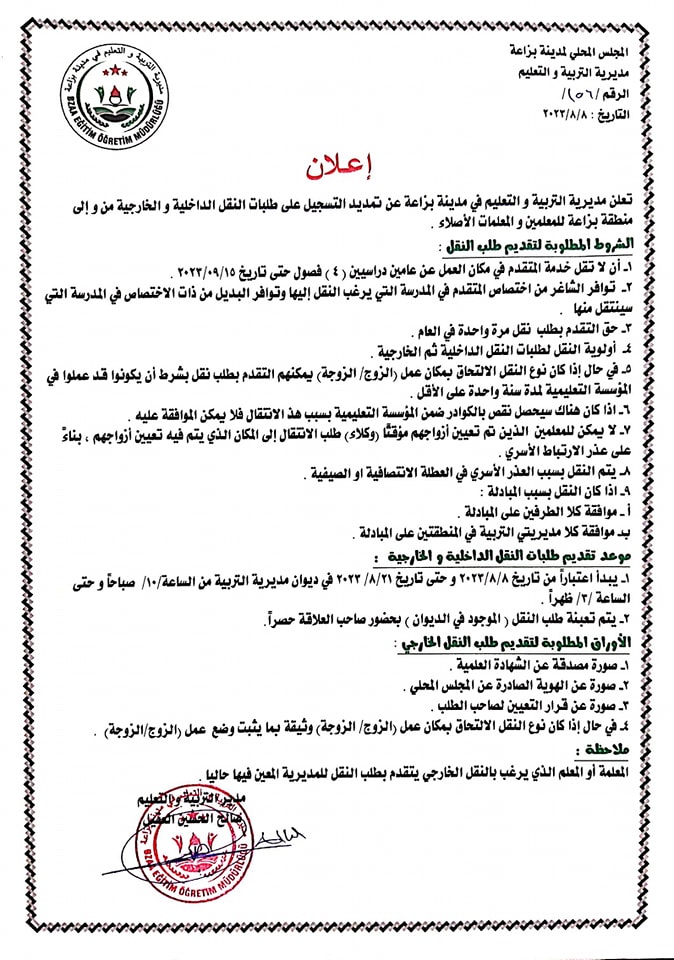 المجلس المحلي لمدينة بزاعة
مديرية التربية و التعليم
الرقم /١٥٦/
التاريخ : ٢٠٢٣/٨/٨
مديرية التربية و التعليم في مدينة بزاعة
BZAA EĞİTİM ÖĞRETİM MÜDÜRLÜĞÜ
إعلان
تعلن مديرية التربية و التعليم في مدينة بزاعة عن تمديد التسجيل على طلبات النقل الداخلية و الخارجية من و إلى
منطقة بزاعة للمعلمين و المعلمات الأصلاء .
الشروط المطلوبة لتقديم طلب النقل :
١ـ أن لا تقل خدمة المتقدم في مكان العمل عن عامين دراسيين ( ٤ ) فصول حتى تاريخ ٢٠٢٣/٠٩/١٥ .
٢ـ توافر الشاغر من اختصاص المتقدم في المدرسة التي يرغب النقل إليها وتوافر البديل من ذات الاختصاص في المدرسة التي
سينتقل منها .
٣ـ حق التقدم بطلب نقل مرة واحدة في العام .
٤ـ أولوية النقل لطلبات النقل الداخلية ثم الخارجية .
٥ـ في حال إذا كان نوع النقل الالتحاق بمكان عمل (الزوج/ الزوجة) يمكنهم التقدم بطلب نقل بشرط أن يكونوا قد عملوا في
المؤسسة التعليمية لمدة سنة واحدة على الأقل .
٦ـ اذا كان هناك سيحصل نقص بالكوادر ضمن المؤسسة التعليمية بسبب هذ الانتقال فلا يمكن الموافقة عليه .
٧ـ لا يمكن للمعلمين الذين تم تعيين أزواجهم مؤقتًا (وكلاء) طلب الانتقال إلى المكان الذي يتم فيه تعيين أزواجهم ، بناءً
على عذر الارتباط الأسري .
٨ـ يتم النقل بسبب العذر الأسري في العطلة الانتصافية او الصيفية .
٩ـ اذا كان النقل بسبب المبادلة :
أ ـ موافقة كلا الطرفين على المبادلة .
بـ موافقة كلا مديريتي التربية في المنطقتين على المبادلة .
موعد تقديم طلبات النقل الداخلية و الخارجية :
١ـ يبدأ اعتباراً من تاريخ ٢٠٢٣/٨/٨ و حتى تاريخ ٢٠٢٣ /٨/٢١ في ديوان مديرية التربية من الساعة/١٠/ صباحاً و حتى
الساعة /٣/ ظهراً .
٢ـ يتم تعبئة طلب النقل ( الموجود في الديوان ) بحضور صاحب العلاقة حصراً.
الأوراق المطلوبة لتقديم طلب النقل الخارجي :
١ـ صورة مصدقة عن الشهادة العلمية .
٢ـ صورة عن الهوية الصادرة عن المجلس المحلي .
٣ـ صورة عن قرار التعيين لصاحب الطلب .
٤ـ في حال إذا كان نوع النقل الالتحاق بمكان عمل (الزوج/ الزوجة) وثيقة بما يثبت وضع عمل (الزوج/الزوجة) .
ملاحظة :
المعلمة أو المعلم الذي يرغب بالنقل الخارجي يتقدم بطلب النقل للمديرية المعين فيها حاليا .
مدير التربية و التعليم
صالح الحسين العقيل
BZAA EĞİTİM ÖĞRETİM MÜDÜRLÜĞÜ